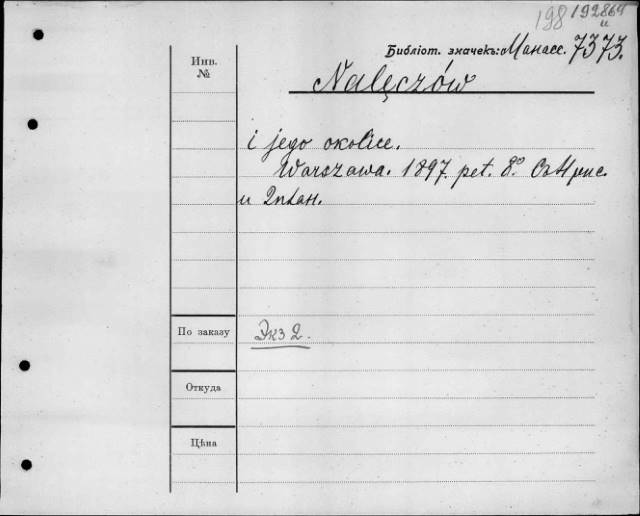 198 192864
и
Библіот. значекъ: Манасс. 7373.
Инв.
№
Nałęczów
i jego okolice.
Warszawa. 1897. pet. 8º. Съ 4 рис.
и 2 план.
По заказу
Экз 2.
Откуда
Цѣна